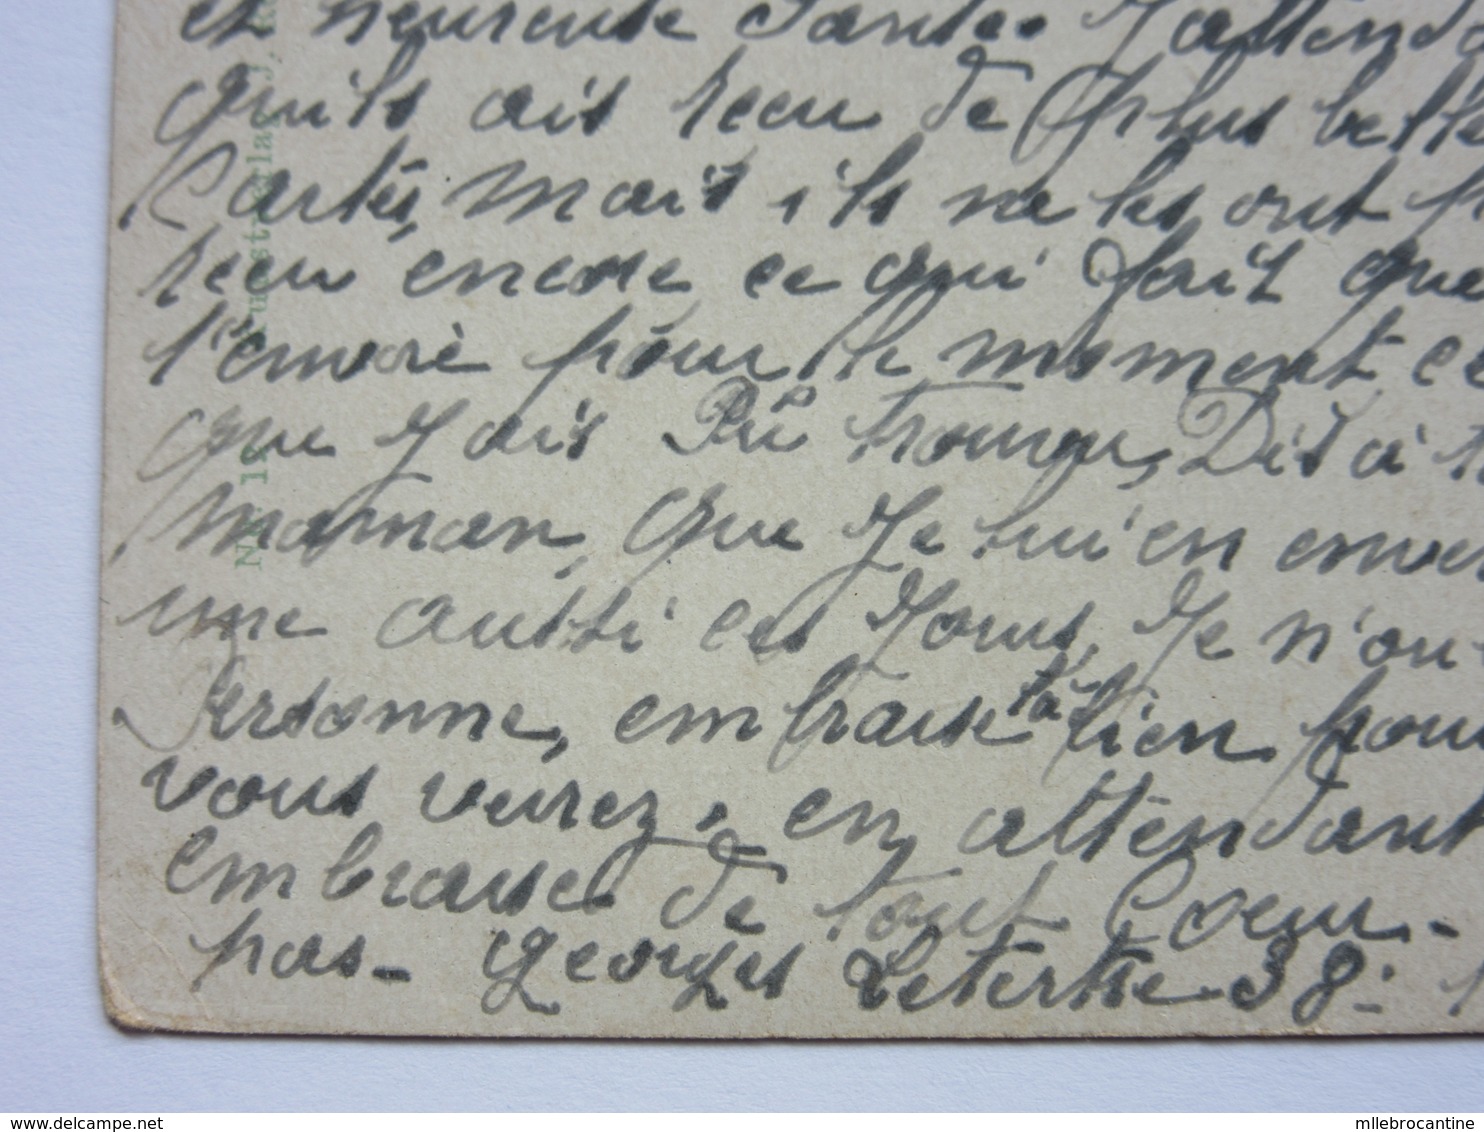 et heureuse Santé. J'attend
qu'ils ais recu de plus belle
Cartes, mais ils ne les ont p
recu encore ce qui fait que
l'envoiè pour le moment ce
que J'ais Pû trouver, Dis à t
maman, que Je lui en enver
une aussi ces Jours, Je n'ou
Personne, embrasse là bien pour
vous verez, en attendant
embrasse de tout Coeur.
pas - Georges Letertre 38:
Nr. 16 Kunstverlag J.
delcampe.net
mllebrocantine